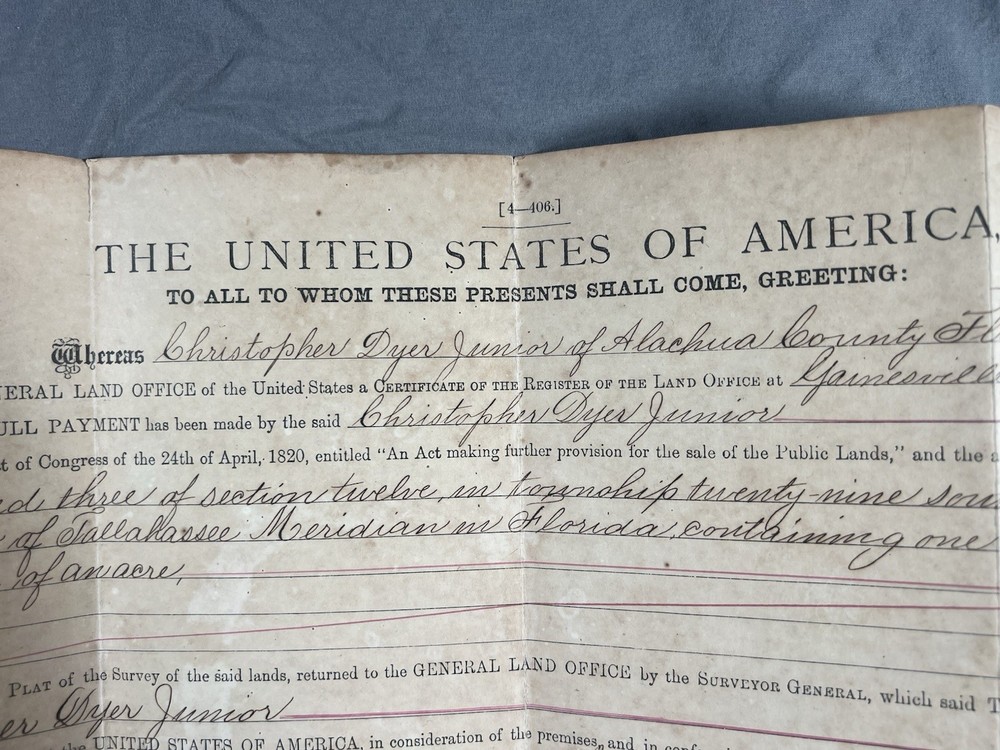 [4—406.]
THE UNITED STATES OF AMERICA,
TO ALL TO WHOM THESE PRESENTS SHALL COME, GREETING:
Whereas Christopher Dyer Junior of Alachua County Fl
NERAL LAND OFFICE of the United States a CERTIFICATE OF THE REGISTER OF THE LAND OFFICE at Gainesvill
ULL PAYMENT has been made by the said Christopher Dyer Junior
t of Congress of the 24th of April, 1820, entitled "An Act making further provision for the sale of the Public Lands," and the a
ed three of section twelve, in township twenty-nine sou
of Tallahassee Meridian in Florida, containing one
of an acre,
PLAT of the Survey of the said lands, returned to the GENERAL LAND OFFICE by the SURVEYOR GENERAL, which said T
er Dyer Junior
the UNITED STATES OF AMERICA, in consideration of the premises, and in conf